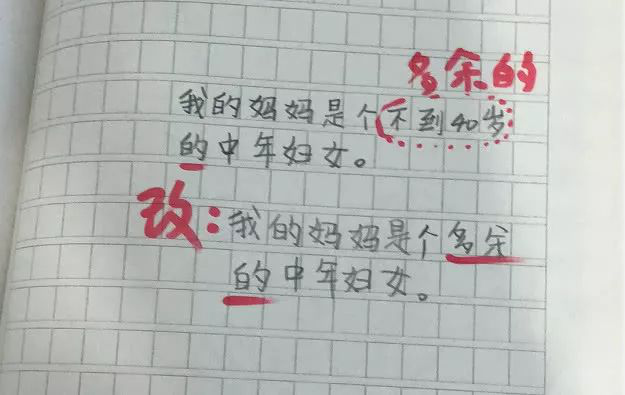 多余的
我的妈妈是个不到40岁
的中年妇女。
改:我的妈妈是个多余
的中年妇女。